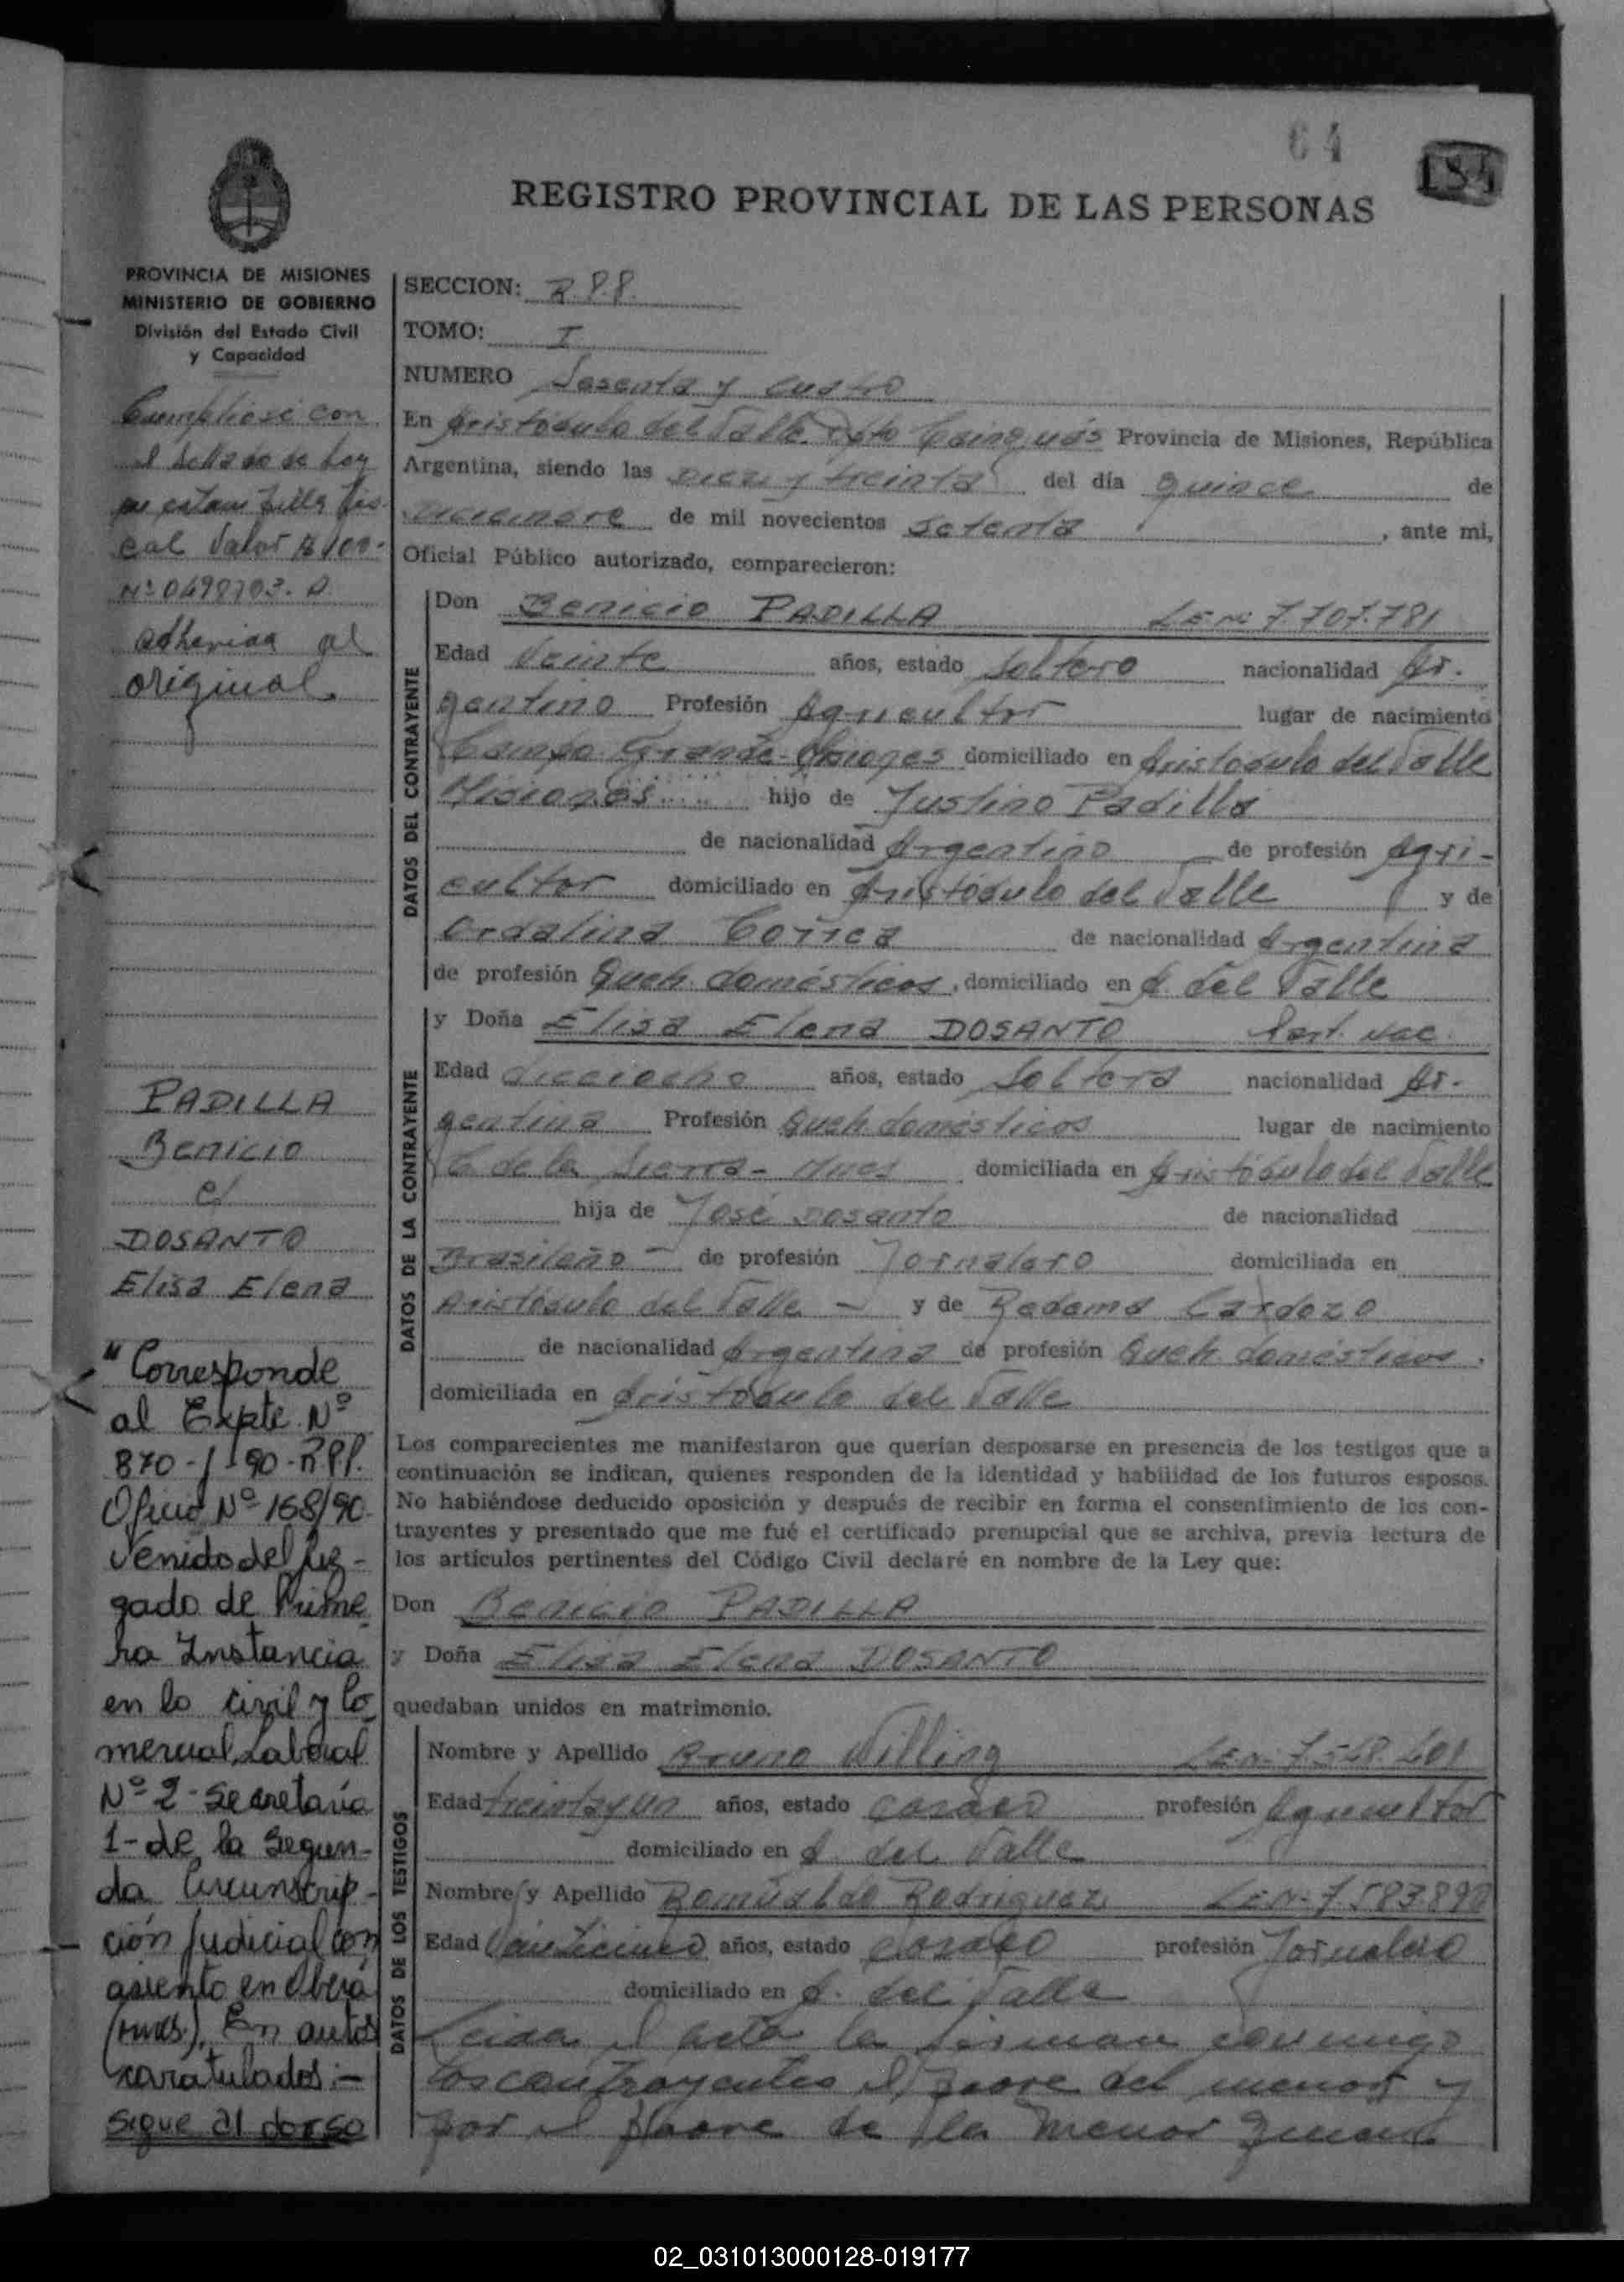 64
184
REGISTRO PROVINCIAL DE LAS PERSONAS
PROVINCIA DE MISIONES
MINISTERIO DE GOBIERNO
División del Estado Civil
y Capacidad
Cumpliose con
el sellado de ley
en estampilla fis-
cal Valor $ 100-
Nº 0498703. A
adherida al
original.
PADILLA
Benicio
c/
DOSANTO
Elisa Elena
"Corresponde
al Expte. Nº
870-/190-R.P.P.
Oficio Nº 168/90.
Venido del Juz-
gado de Prime
ra Instancia
en lo Civil y Co
mercial, Laboral
Nº 2 - Secretaria
1- de la Segun-
da Circunscrip-
ción Judicial con
asiento en Oberá
(Mnes.). En autos
caratulados:-
Sigue al dorso
SECCION: R.P.P.
TOMO: I
NUMERO Sesenta y cuatro
En Aristóbulo del Valle Dpto Cainguás Provincia de Misiones, República
Argentina, siendo las Diez y treinta del día quince de
Diciembre de mil novecientos setenta, ante mi,
Oficial Público autorizado, comparecieron:
DATOS DEL CONTRAYENTE
Don Benicio PADILLA LE Nº 7.707.781
Edad Veinte años, estado Soltero nacionalidad Ar-
gentino Profesión Agricultor lugar de nacimiento
Campo Grande - Misiones domiciliado en Aristóbulo del Valle
Misiones hijo de Justino Padilla
de nacionalidad Argentino de profesión Agri-
cultor domiciliado en Aristóbulo del Valle y de
Ordalina Correa de nacionalidad Argentina
de profesión Queh. domésticos, domiciliado en A. del Valle
DATOS DE LA CONTRAYENTE
y Doña Elisa Elena DOSANTO Part. Nac.
Edad dieciocho años, estado Soltera nacionalidad Ar-
gentina Profesión Queh. domésticos lugar de nacimiento
C. de la Sierra - Mnes domiciliada en Aristóbulo del Valle
hija de José Dosanto de nacionalidad
Brasileño - de profesión Jornalero domiciliada en
Aristóbulo del Valle - y de Cardozo
de nacionalidad Argentina de profesión Queh. domésticos,
domiciliada en Aristóbulo del Valle
Los comparecientes me manifestaron que querían desposarse en presencia de los testigos que a
continuación se indican, quienes responden de la identidad y habilidad de los futuros esposos.
No habiéndose deducido oposición y después de recibir en forma el consentimiento de los con-
trayentes y presentado que me fué el certificado prenupcial que se archiva, previa lectura de
los artículos pertinentes del Código Civil declaré en nombre de la Ley que:
Don Benicio PADILLA
y Doña Elisa Elena DOSANTO
quedaban unidos en matrimonio.
DATOS DE LOS TESTIGOS
Nombre y Apellido Bruno Willing LE Nº
Edad treinta y un años, estado casado profesión Agricultor
domiciliado en A. del Valle
Nombre y Apellido Romualdo Rodriguez LE Nº
Edad Veinticinco años, estado casado profesión Jornalero
domiciliado en A. del Valle
Leida el acta la firman conmigo
los contrayentes el padre del menor y
por el padre de la menor
02_031013000128-019177